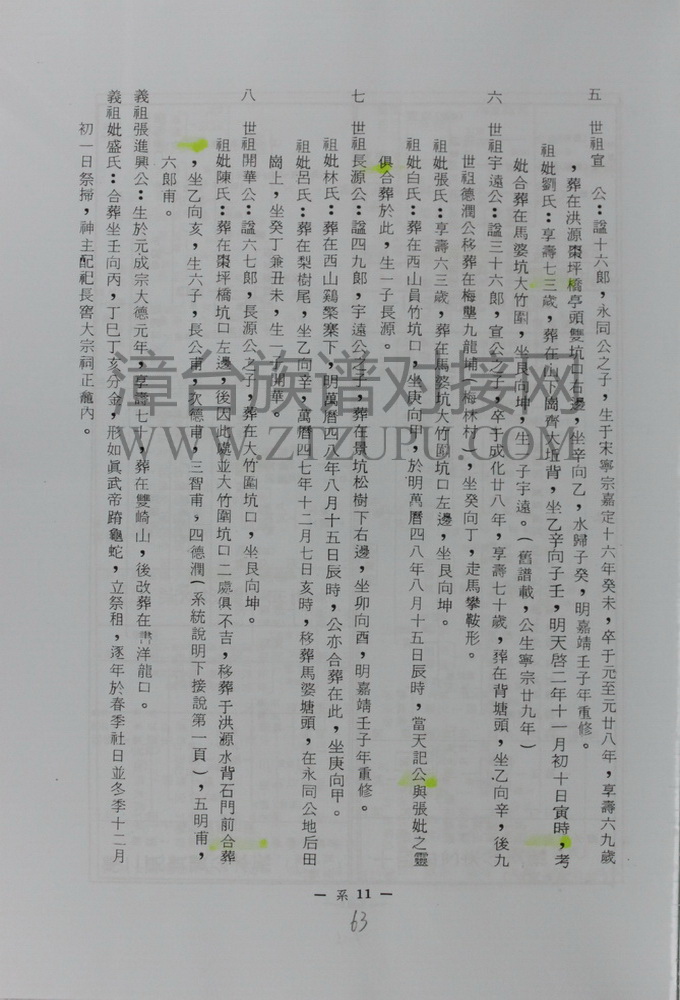 五　世祖宣　公：諡十六郎，永同公之子，生于宋寧宗嘉定十六年癸未，卒于元至元廿八年，享壽六九歲
，葬在洪源棗坪橋亭頭雙坑口右邊，坐辛向乙，水歸子癸，明嘉靖壬子年重修。
祖妣劉氏：享壽七三歲，葬在山下崗齊大坵背，坐乙辛向子壬，明天啓二年十一月初十日寅時，考
妣合葬在馬婆坑大竹圍，坐艮向坤，生一子宇遠。（舊譜載，公生寧宗廿九年）
六　世祖宇遠公：諡三十六郎，宣公之子，卒于成化廿八年，享壽七十歲，葬在背塘頭，坐乙向辛，後九
世祖德潤公移葬在梅壟九龍埔（梅林村），坐癸向丁，走馬攀鞍形。
祖妣張氏：享壽六三歲，葬在馬婆坑大竹圍坑口左邊，坐艮向坤。
祖妣白氏：葬在西山員竹坑口，坐庚向甲，於明萬曆四八年八月十五日辰時，當天記公與張妣之靈
俱合葬於此，生一子長源。
七　世祖長源公：諡四九郎，宇遠公之子，葬在景坑松樹下右邊，坐卯向酉，明嘉靖壬子年重修。
祖妣林氏：葬在西山鷄棸寨下，明萬曆四八年八月十五日辰時，公亦合葬在此，坐庚向甲。
祖妣呂氏：葬在梨樹尾，坐乙向辛，萬曆四七年十二月七日亥時，移葬馬婆塘頭，在永同公地后田
崗上，坐癸丁兼丑未，生一子開華。
八　世祖開華公：諡六七郎，長源公之子，葬在大竹圍坑口，坐艮向坤。
祖妣陳氏：葬在棗坪橋坑口左邊，後因此處並大竹圍坑口二處俱不吉，移葬于洪源水背石門前合葬
，坐乙向亥，生六子，長公甫，次德甫，三智甫，四德潤（系統說明下接說第一頁），五明甫，
六郎甫。
義祖張進興公：生於元成宗大德元年，享壽七一，葬在雙崎山，後改葬在書洋龍口。
義祖妣盛氏：合葬坐壬向丙，丁巳丁亥分金，形如眞武帝踏龜蛇，立祭租，逐年於春季社日並冬季十二月
初一日祭掃，神主配祀長窖大宗祠正龕內。
漳台族谱对接网
WWW.ZTZUPU.COM
— 系 11 —
63